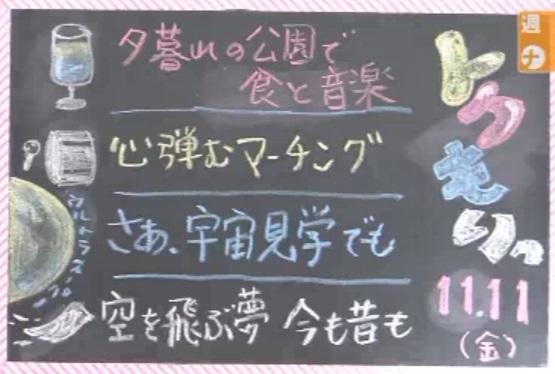 夕暮れの公園で
食と音楽
心弾むマーチング
さあ、宇宙見学でも
空を飛ぶ夢 今も昔も
とりもり。
11.11
(金)
週ナ